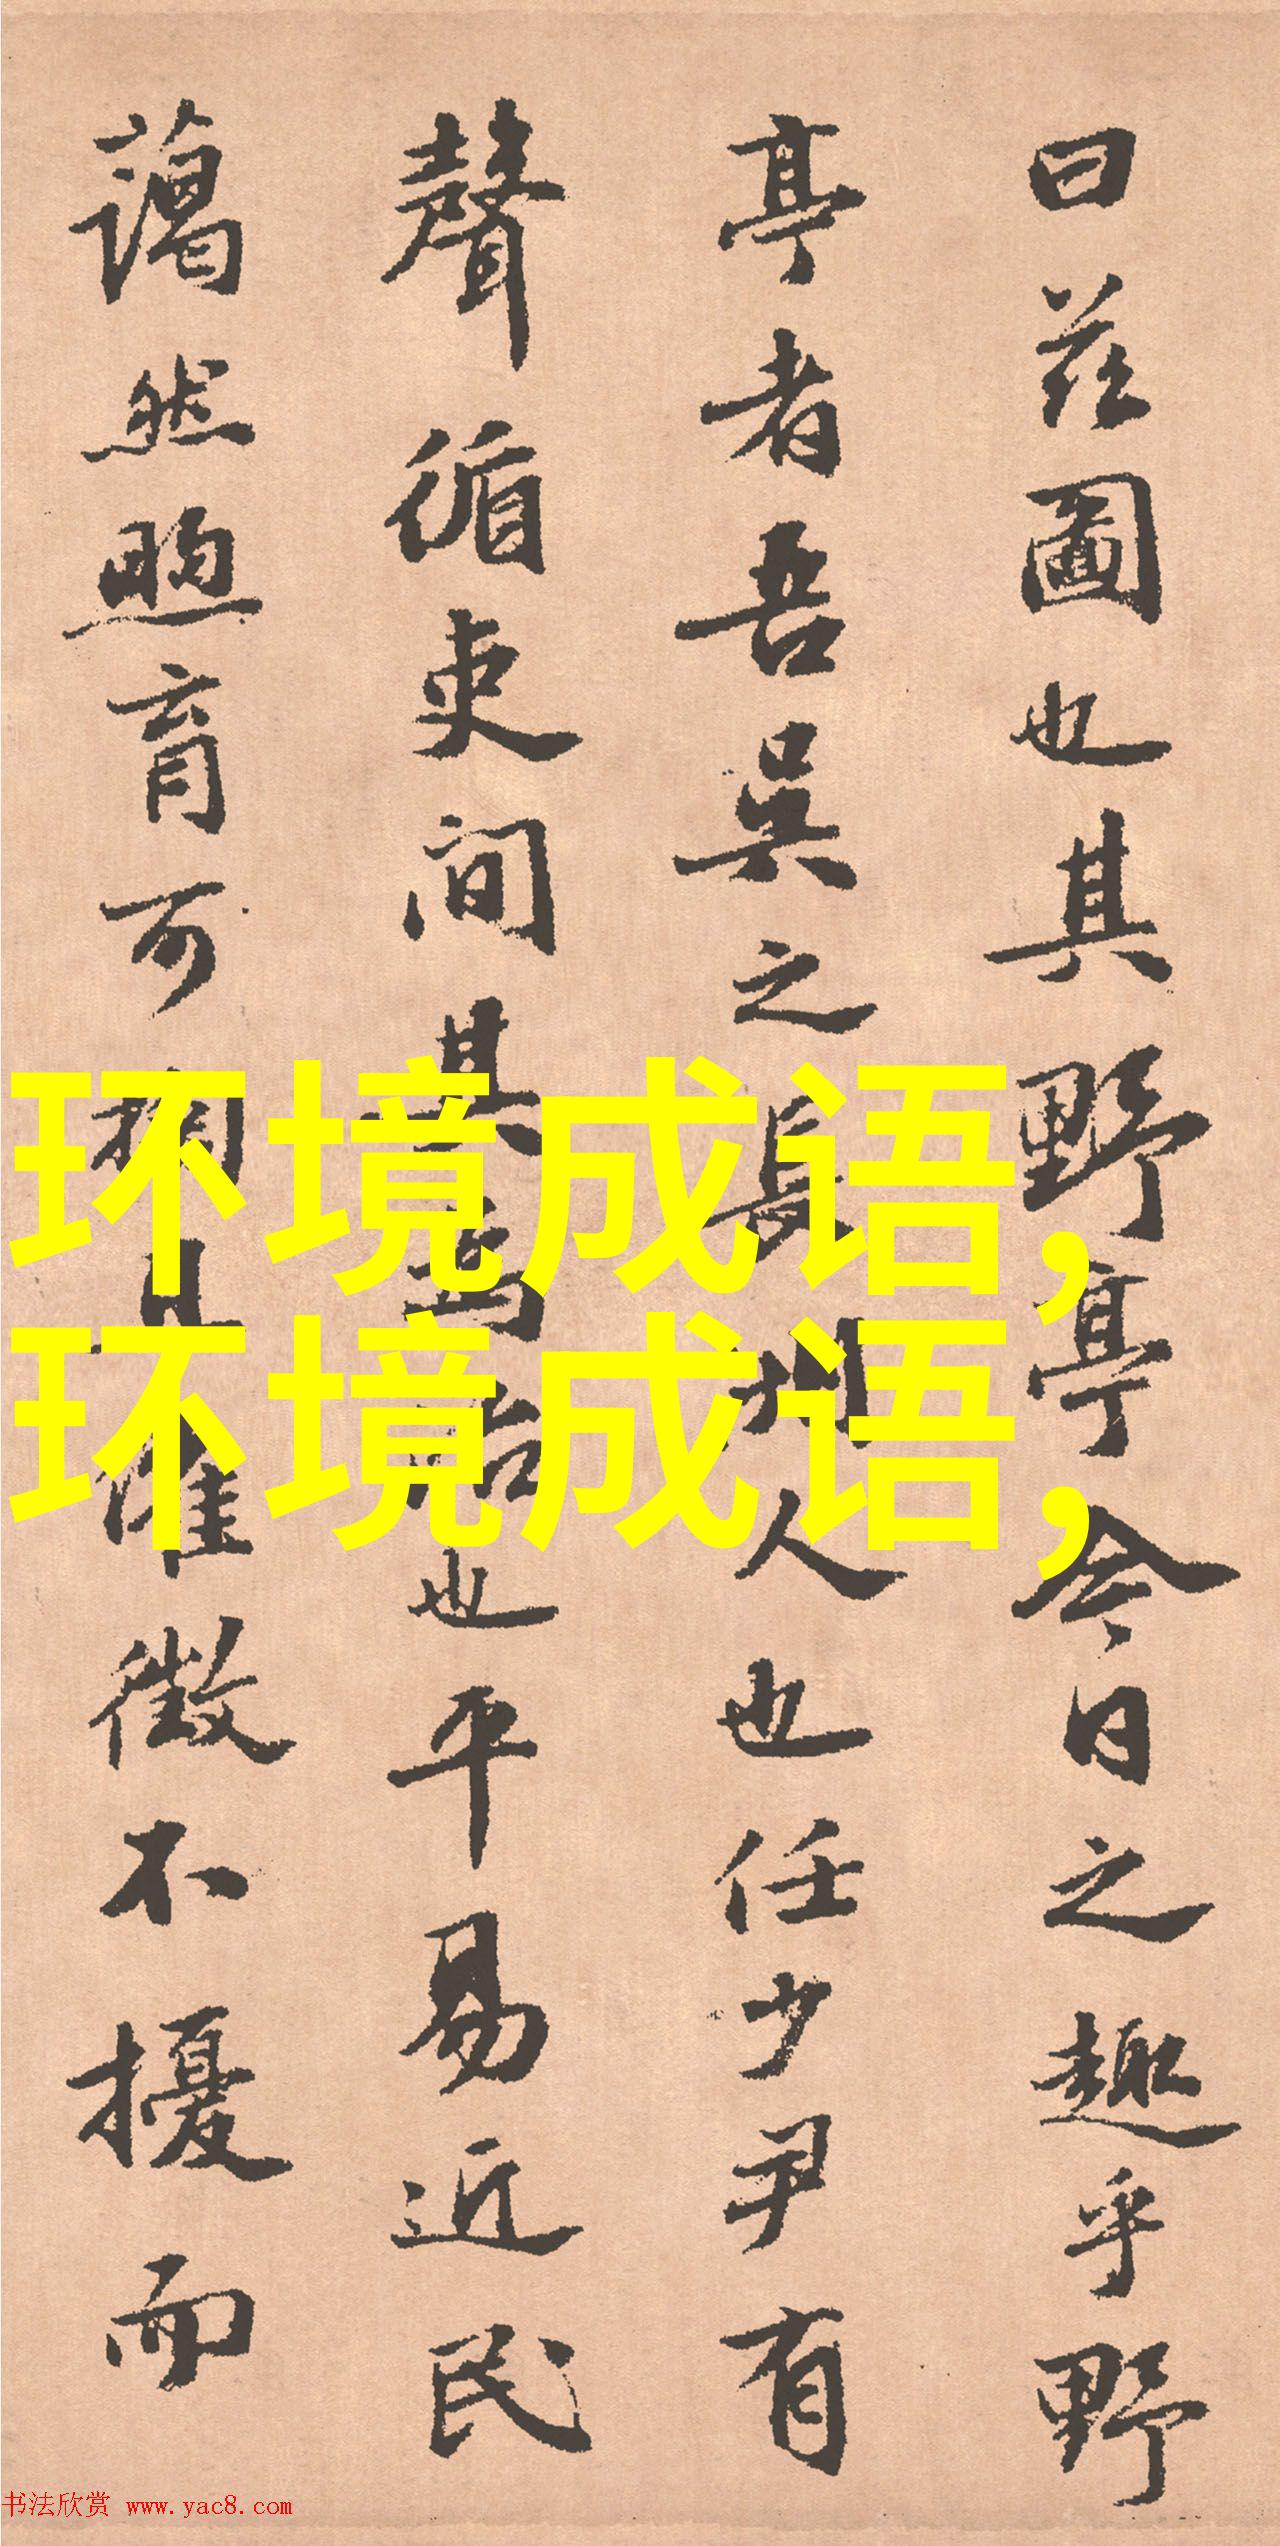 曰茲圖也其野亭今日之趣乎野
亭者吾吳之長洲人也任少尹有
聲循吏間其為治也平易近民
藹然煦育可掬且催徵不擾而
环境成语,
环境成语,
书法欣赏 www.yac8.com